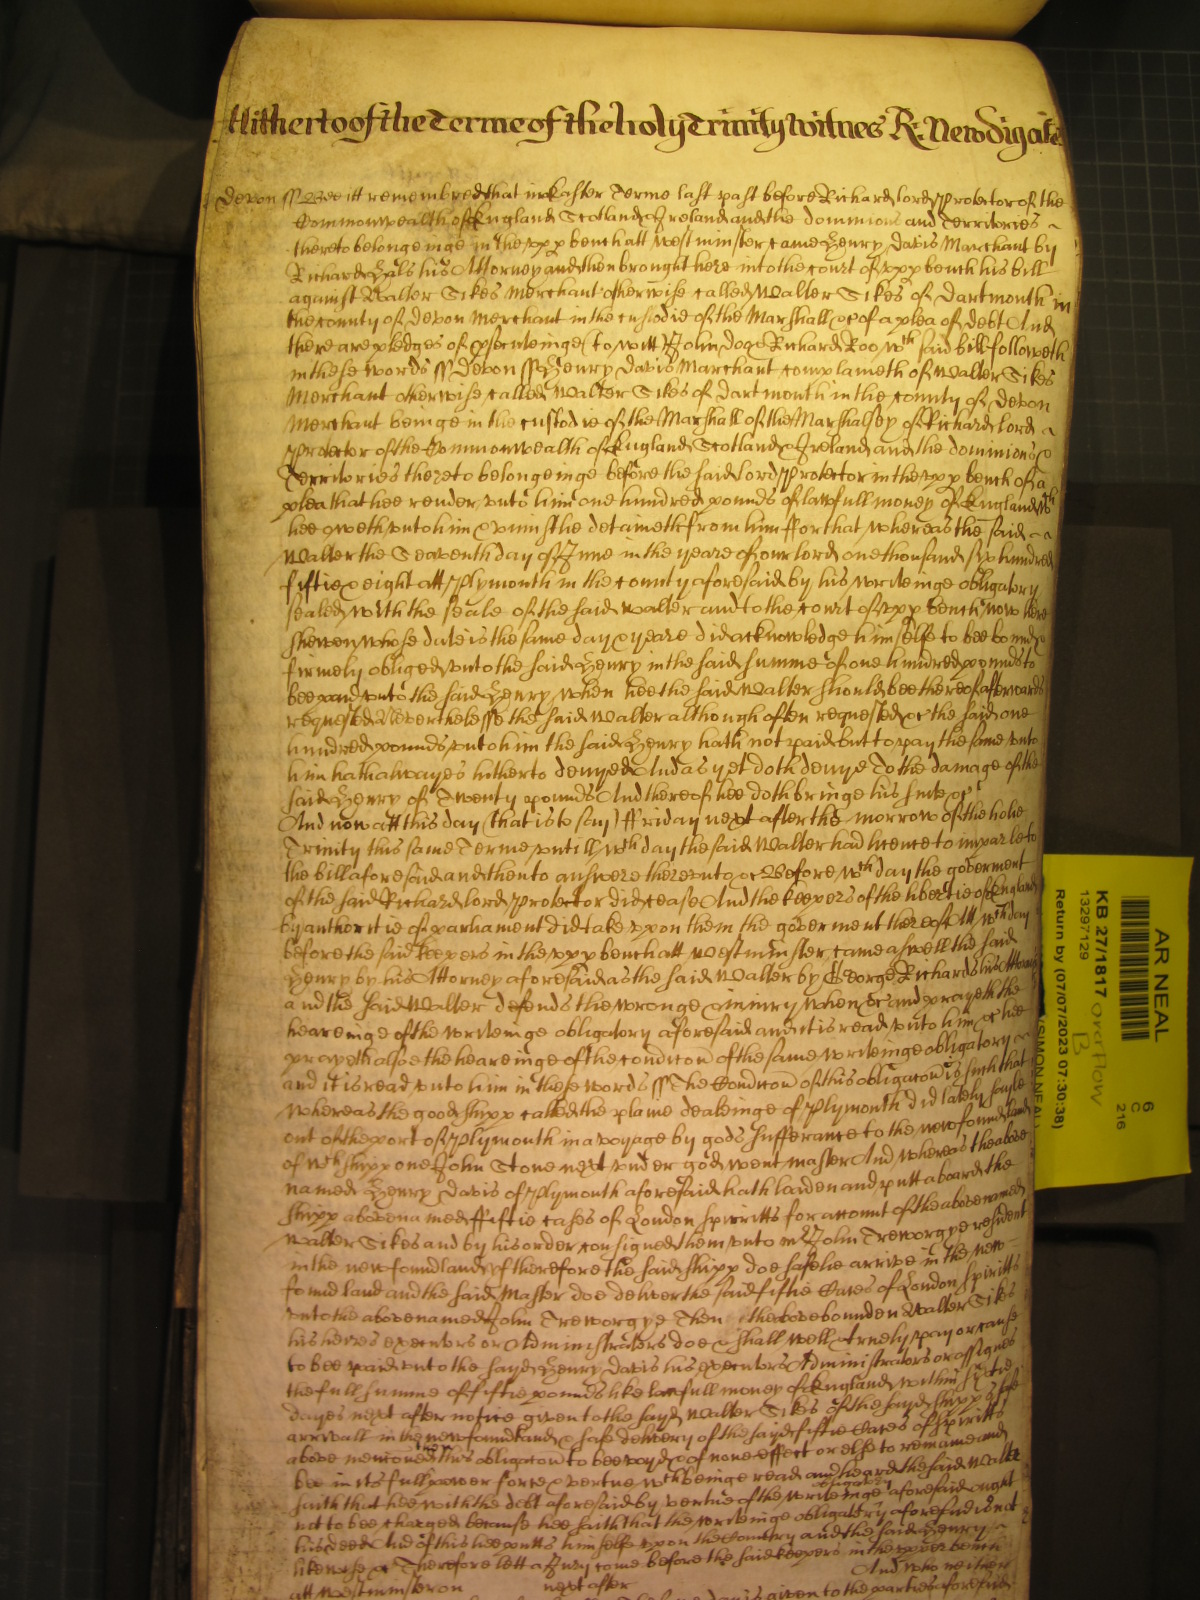 Hitherto of the Terme of the holy Trinity witnes R: Newdigate
Devon ss Bee itt remembred that in Easter Terme last past before Richard lord Protector of the
Commonwealth of England Scotland & Ireland and the dominions and Territories
thereto belongeinge in the vpp bench att Westminster came Henry Davis Merchant by
Richard Hals his Attorney and then brought here into the court of vpp bench his bill
against Walter Sikes Merchant otherwise called Walter Sikes of Dartmouth in
the county of Devon Merchant in the custodie of the Marshall &c of a plea of debt And
there are pledges of prosecuteinge (to witt) John Doe & Richard Roo wch said bill followeth
in these words ss Devon ss Henry Davis Merchant complaineth of Walter Sikes
Merchant otherwise called Walter Sikes of Dartmouth in the county of Devon
Merchant beinge in the custodie of the Marshall of the Marshalsey of Richard lord
Protector of the Commonwealth of England Scotland & Ireland and the dominions &
Territories thereto belongeinge before the said lord Protector in the vpp bench of a
plea that hee render vnto him one hundred pounds of lawfull money of England wch
hee oweth vnto him & vniustlie detaineth from him ffor that whereas the said
Walter the Seaventh day of June in the yeare of our lord one thousand six hundred
fiftie & eight att Plymouth in the county aforesaid by his writeinge obligatory
sealed with the seale of the said Walter and to the court of vpp bench now here
shewen whose date is the same day & yeare did acknowledge himselfe to bee bound &
firmely obliged vnto the said Henry in the said summe of one hundred pounds to
bee paid vnto the said Henry when hee the said Walter should bee thereof afterwards
requested Neverthelesse the said Walter although often requested &c the said one
hundred pounds vnto him the said Henry hath not paid but to pay the same vnto
him hath alwayes hitherto denyed And as yet doth denye To the damage of the
said Henry of Twenty pounds And thereof hee doth bringe his suite &c
And now att this day (that is to say) ffriday next after the morrow of the holie
Trinity this same Terme vntill wch day the said Walter had licence to imparle to
the bill aforesaid and then to answere therevnto &c Before wch day the goverment
of the said Richard lord Protector did cease And the keepers of the libertie of England
by authoritie of parliament did take vpon them the goverment thereof Att wch day
before the said keepers in the vpp bench att Westminster came aswell the said
Henry by his Attorney aforesaid as the said Walter by George Richards his Attorney
and the said Walter defends the wronge & iniury when &c and prayeth the
heareinge of the writeinge obligatory aforesaid and it is read vnto him &c hee
prayeth alsoe the heareinge of the condicon of the same writeinge obligatory
and it is read vnto him in these words ss The Condicon of this obligacon is such that
whereas the good shipp called the plaine dealeinge of Plymouth did lately sayle
out of the port of Plymouth in a voyage by gods sufferance to the newfoundland
of wch shipp one John Stone next vnder god went master And whereas the above
named Henry Davis of Plymouth aforesaid hath laiden and putt aboard the
shipp abovenamed ffiftie cases of London spirritts for account of the abovenamed
Walter Sikes and by his order consigned them vnto mr John Treworgye resident
in the newfoundland If therefore the said shipp doe safelie arrive in the new
foundland and the said Master doe deliver the said fiftie Cases of London spiritts
vnto the abovenamed John Treworgye Then if the above bounden Walter Sikes
his heires executors or Administrators doe & shall well & truely pay or cause
to bee paid vnto the sayd Henry Davis his executors Administrators or assignes
the full summe of fiftie pounds like lawfull money of England within sixtie
dayes next after notice given to the sayd Walter Sikes of the sayd shipps safe
arrivall in the newfoundland & safe delivery of the sayd fiftie Cases of spiritts
above mencioned then this obligacon to bee voyd & of none effect or else to remaine and
bee in its full power force & vertue wch beinge read and heard the said Walter
saith that hee with the debt aforesaid by vertue of the writeinge obligatory aforesaid ought
not to bee charged because hee saith that the writeinge obligatory aforesaid is not
his deed And of this hee putts himselfe vpon the Country and the said Henry
likewise &c Therefore lett a Jury come before the said keepers in the vpper bench
att Westminster on next after And who neither
AR NEAL
6
C
216
KB 27/1817 overflow
B
13297129
Return by (07/07/2023 07:30:38)
(SIMON NEAL)